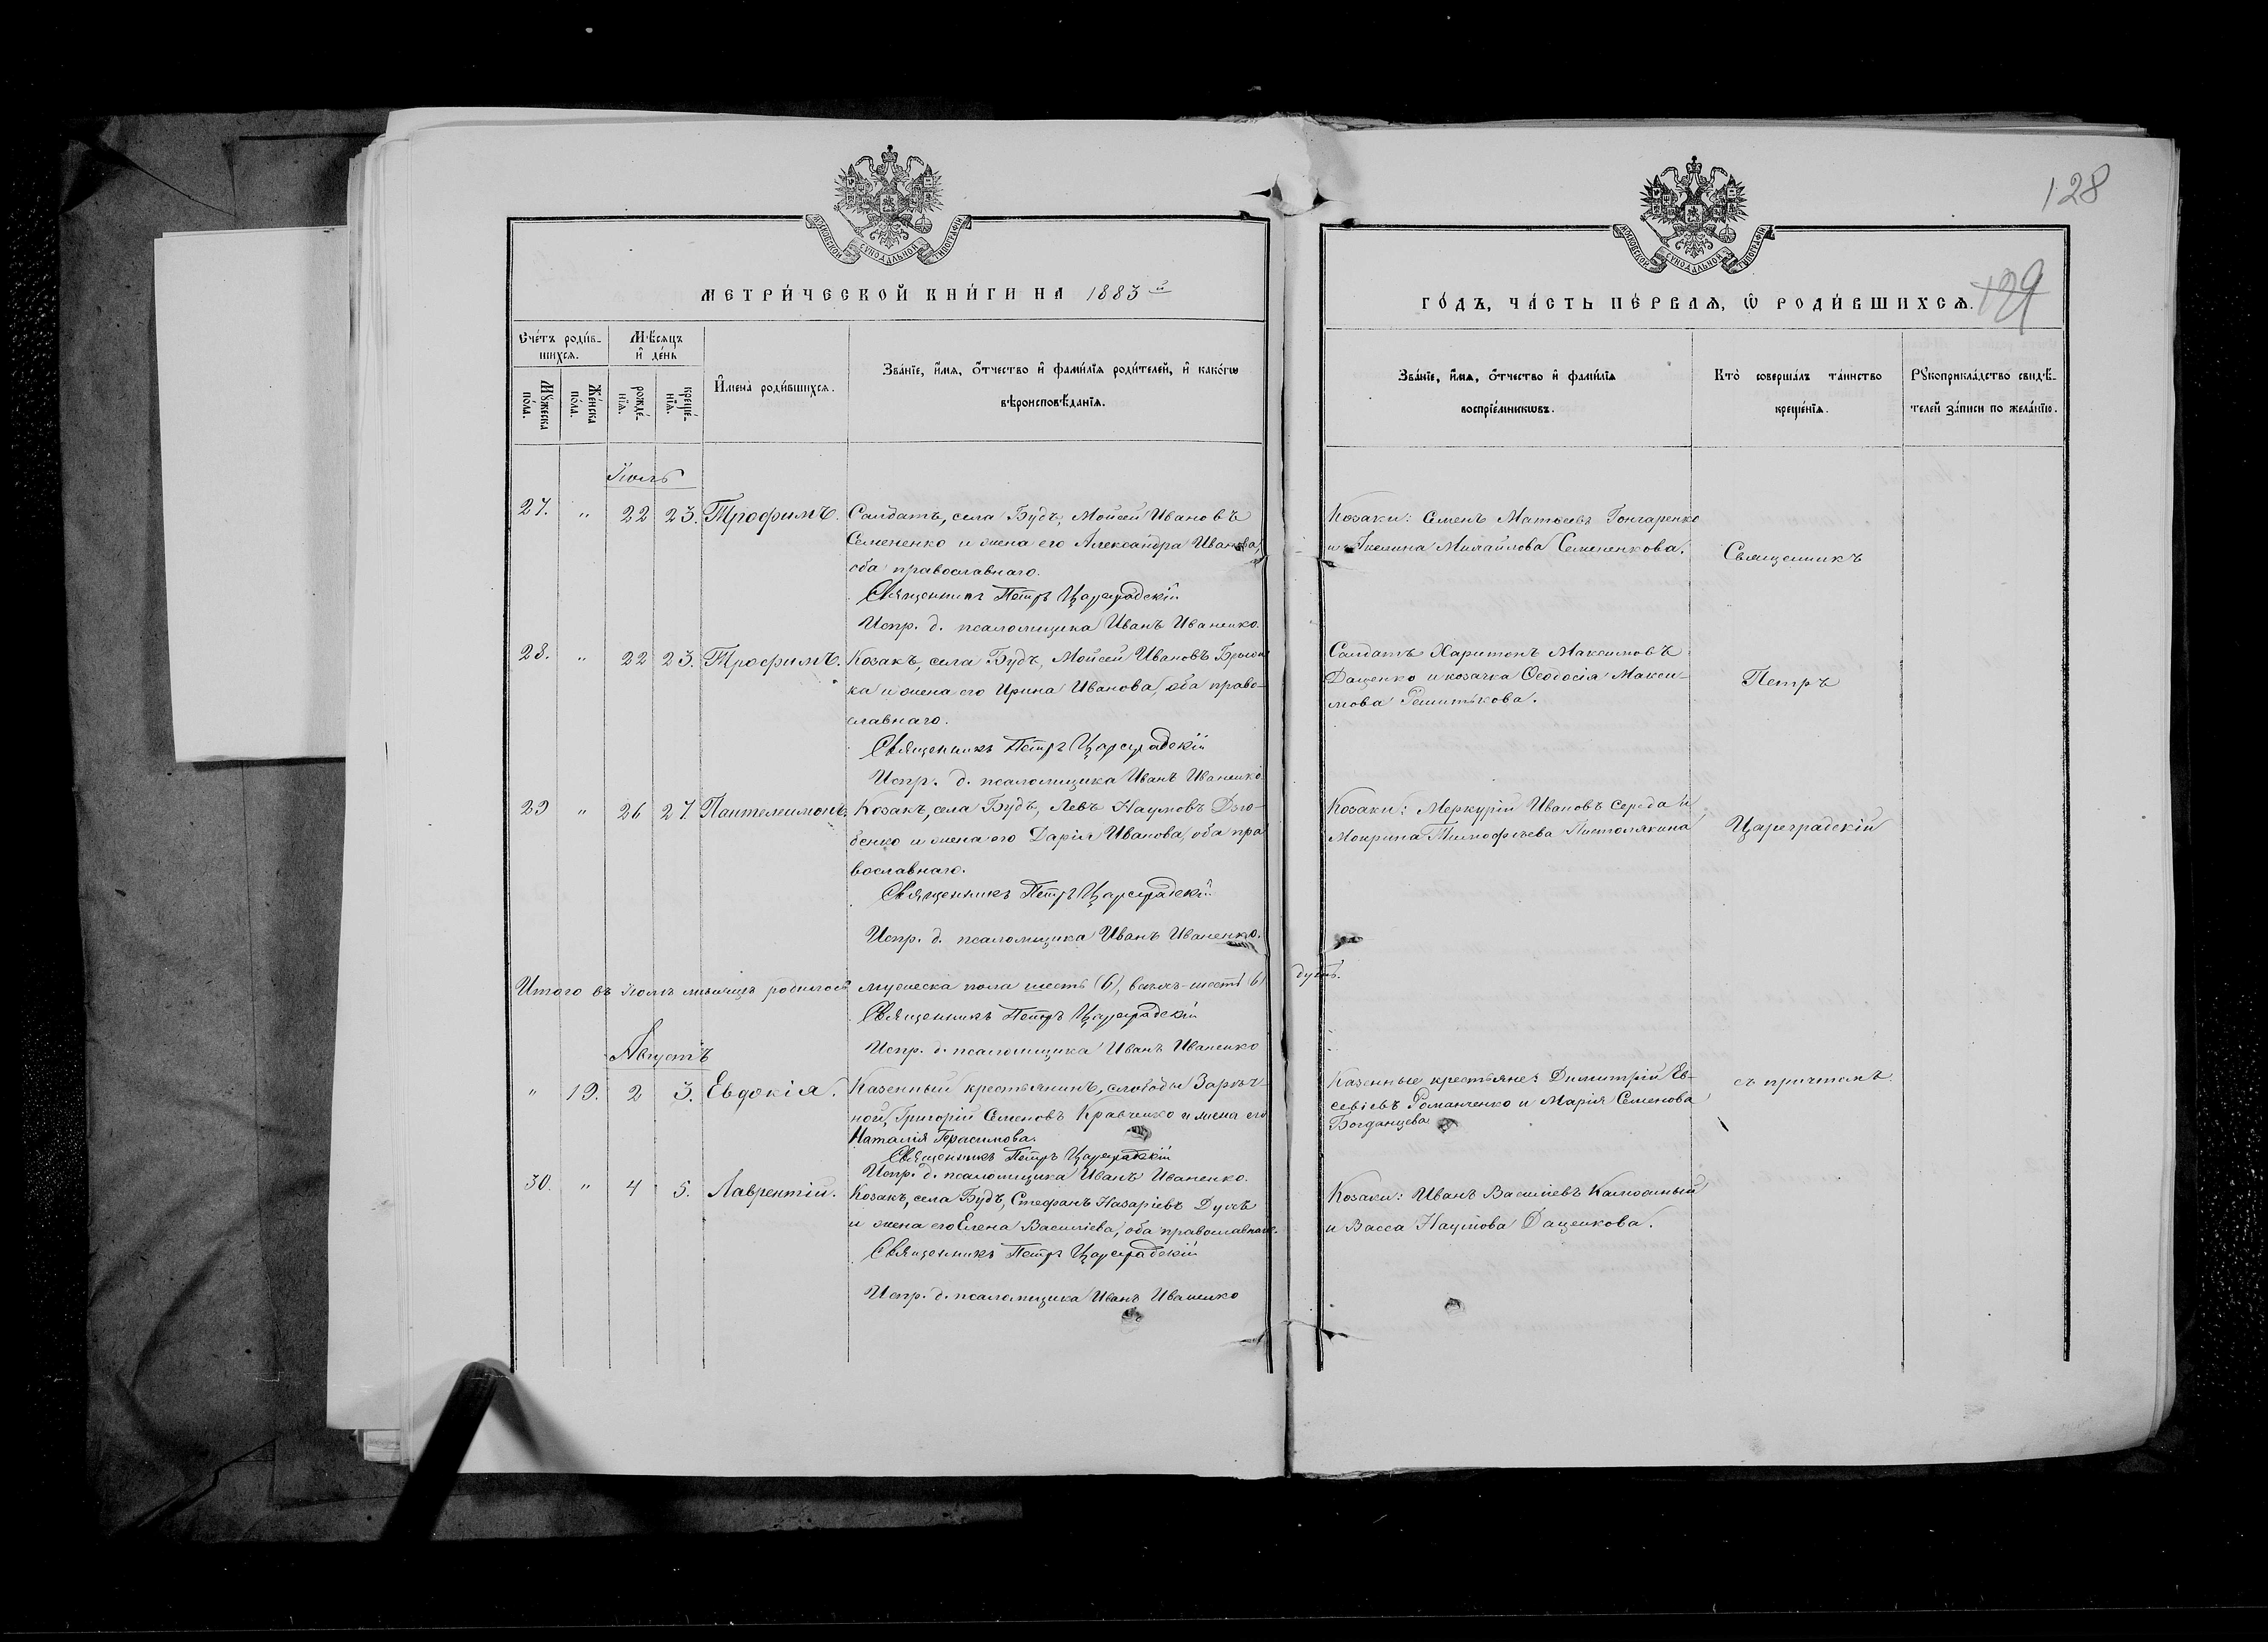 128
МОСКОВСКОЙ СУНОДАЛЬНОЙ ТИПОГРАФІИ
МОСКОВСКОЙ СУНОДАЛЬНОЙ ТИПОГРАФІИ
МЕТРИ́ЧЕСКОЙ КНИ́ГИ НА 1883 й
ГО́ДЪ, ЧА́СТЬ ПЕ́РВАЯ, Ѡ РОДИ́ВШИХСЯ.
129
Сче́тъ роди́в-
шихся.
Мꙋжеска по́ла.
Же́нска по́ла.
Мѣ́сяцъ
и҆ де́нь
рожде́-
нїя.
креще́-
нїя.
И҆мена̀ роди́вшихся.
Зва́нїе, и҆́мя, ѻ҆́тчество и҆ фами́лїя роди́телей, и҆ како́гѡ
вѣроисповѣ́данїя.
Зва́нїе, и҆́мя, ѻ҆́тчество и҆ фами́лїя
воспрїе́мникѡвъ.
Кто̀ соверша́лъ та́инство
креще́нїя.
Рꙋкоприкла́дство свидѣ́-
телей за́писи по жела́нїю.
Іюль
27. " 22 23. Трофимъ. Салдатъ, села Будъ, Мойсей Ивановъ
Семененко и жена его Александра Иванова,
оба православнаго.
Священникъ Петръ Цареградскій
Испр. д. псаломщика Иванъ Иваненко.
Козаки: Семенъ Матѳеевъ Гончаренко
и Михайлова Семененкова.
Священникъ
28. " 22 23. Трофимъ. Козакъ, села Будъ, Мойсей Ивановъ
ка и жена его Ирина Иванова, оба право-
славнаго.
Священникъ Петръ Цареградскій
Испр. д. псаломщика Иванъ Иваненко
Салдатъ Харитонъ Максимовъ
Даценко и козачка Ѳеодосія Макси-
мова
Петръ
29 " 26 27. Пантелеимонъ. Козакъ, села Будъ, Левъ Наумовъ Дзю-
бенко и жена его Дарія Иванова, оба пра
вославнаго.
Священникъ Петръ Цареградскій
Испр. д. псаломщика Иванъ Иваненко.
Козаки: Меркурій Ивановъ Середа и
Мокрина Тимофѣева
Цареградскій
Итого въ Іюлѣ мѣсяцѣ родилось мужеска пола шесть (6), всѣхъ - шесть (6) душъ.
Священникъ Петръ Цареградскій
Испр. д. псаломщика Иванъ Иваненко
Августъ
" 19. 2 3. Евдокія. Казенный крестьянинъ, слободы Зарѣч-
ной, Григорій Семеновъ Кравченко и жена его
Наталія Герасимова.
Священникъ Петръ Цареградскій
Испр. д. псаломщика Иванъ Иваненко.
Казенные крестьяне: Димитрій Ев-
севіевъ Романченко и Марія Семенова
Богданцева
съ причтомъ.
30. " 4 5. Лаврентій. Козакъ, села Будъ, Стефанъ Назаріевъ
и жена его Елена Василіева, оба православнаго.
Священникъ Петръ Цареградскій
Испр. д. псаломщика Иванъ Иваненко
Козаки: Иванъ Василіевъ
и Васса Наумова Даценкова.